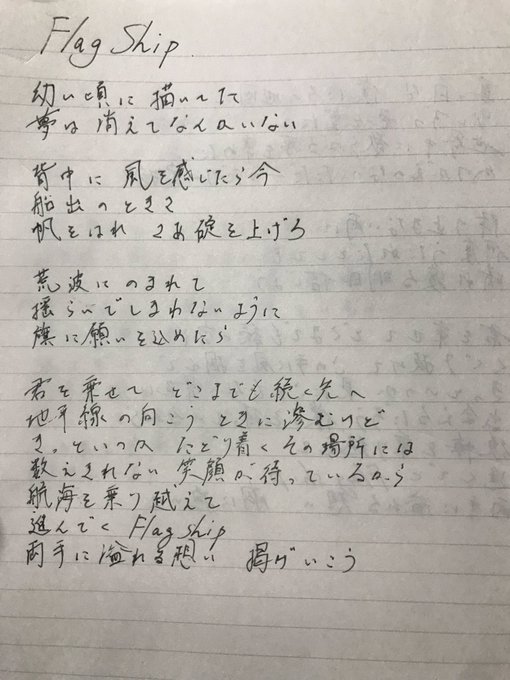 Flag Ship
幼い頃に 描いてた
夢は 消えてなんかいない
背中に 風を感じたら今
船出のときさ
帆をはれ さあ碇を上げろ
荒波にのまれて
揺らいでしまわないように
旗に願いを込めたら
君を乗せて どこまでも続く先へ
地平線の向こう ときに滲むけど
きっといつか たどり着くその場所には
数えきれない 笑顔が待っているから
航海を乗り越えて
進んでく Flag Ship
両手に溢れる想い 掲げいこう